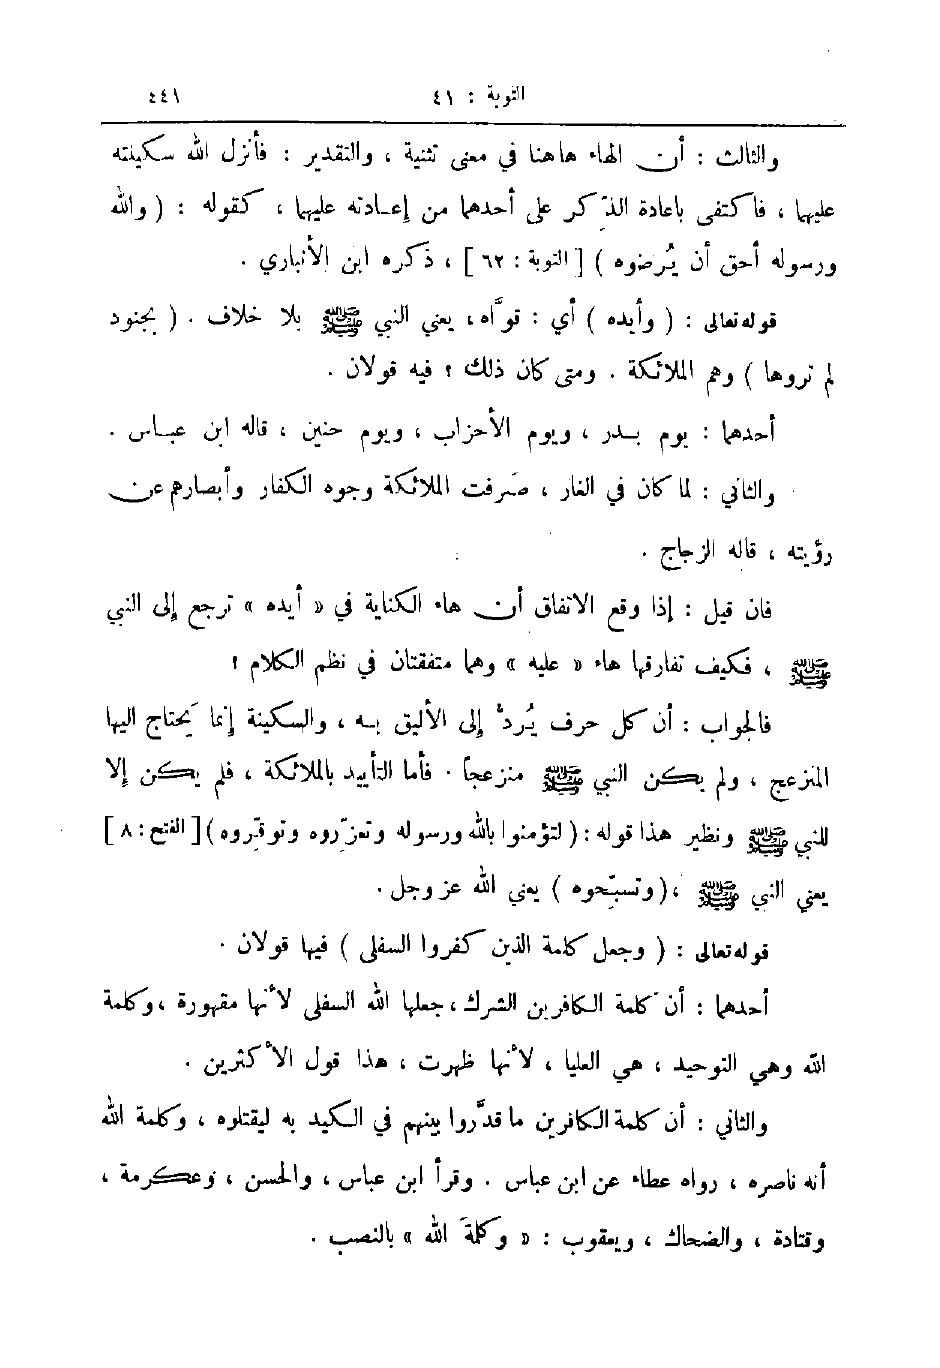 التوبة : ٤١ ٤٤١
والثالث : أن الهاء هاهنا في معنى تثنية ، والتقدير : فأنزل الله سكينته
عليها ، فاكتفى باعادة الذّكر على أحدهما من إعادته عليها ، كقوله : ( والله
ورسوله أحق أن يُرضوه ) [ التوبة : ٦٢ ] ، ذكره ابن الأنباري .
قوله تعالى : ( وأيده ) أي : قوَّاه ، يعني النبي ﷺ بلا خلاف . ( بجنود
لم تروها ) وهم الملائكة . ومتى كان ذلك ؟ فيه قولان .
أحدهما : يوم بدر ، ويوم الأحزاب ، ويوم حنين ، قاله ابن عباس .
والثاني : لما كان في الغار ، صَرفت الملائكة وجوه الكفار وأبصارهم عن
رؤيته ، قاله الزجاج .
فان قيل : إذا وقع الاتفاق أن هاء الكناية في « أيده » ترجع إلى النبي
ﷺ ، فكيف تفارقها هاء « عليه » وهما متفقتان في نظم الكلام ؟
فالجواب : أن كل حرف يُردُّ إلى الأليق به ، والسكينة إنما يَحتاج اليها
المنزعج ، ولم يكن النبي ﷺ منزعجاً . فأما التأييد بالملائكة ، فلم يكن إلا
للنبي ﷺ ونظير هذا قوله : ( لتؤمنوا بالله ورسوله وتعزّروه وتوقّروه ) [ الفتح : ٨ ]
يعني النبي ﷺ ، ( وتسبّحوه ) يعني الله عز وجل .
قوله تعالى : ( وجعل كلمة الذين كفروا السفلى ) فيها قولان .
أحدهما : أن كلمة الكافرين الشرك ، جعلها الله السفلى لأنها مقهورة ، وكلمة
الله وهي التوحيد ، هي العليا ، لأنها ظهرت ، هذا قول الأكثرين .
والثاني : أن كلمة الكافرين ما قدَّروا بينهم في الكيد به ليقتلوه ، وكلمة الله
أنه ناصره ، رواه عطاء عن ابن عباس . وقرأ ابن عباس ، والحسن ، وعكرمة ،
وقتادة ، والضحاك ، ويعقوب : « وكلمةَ الله » بالنصب .